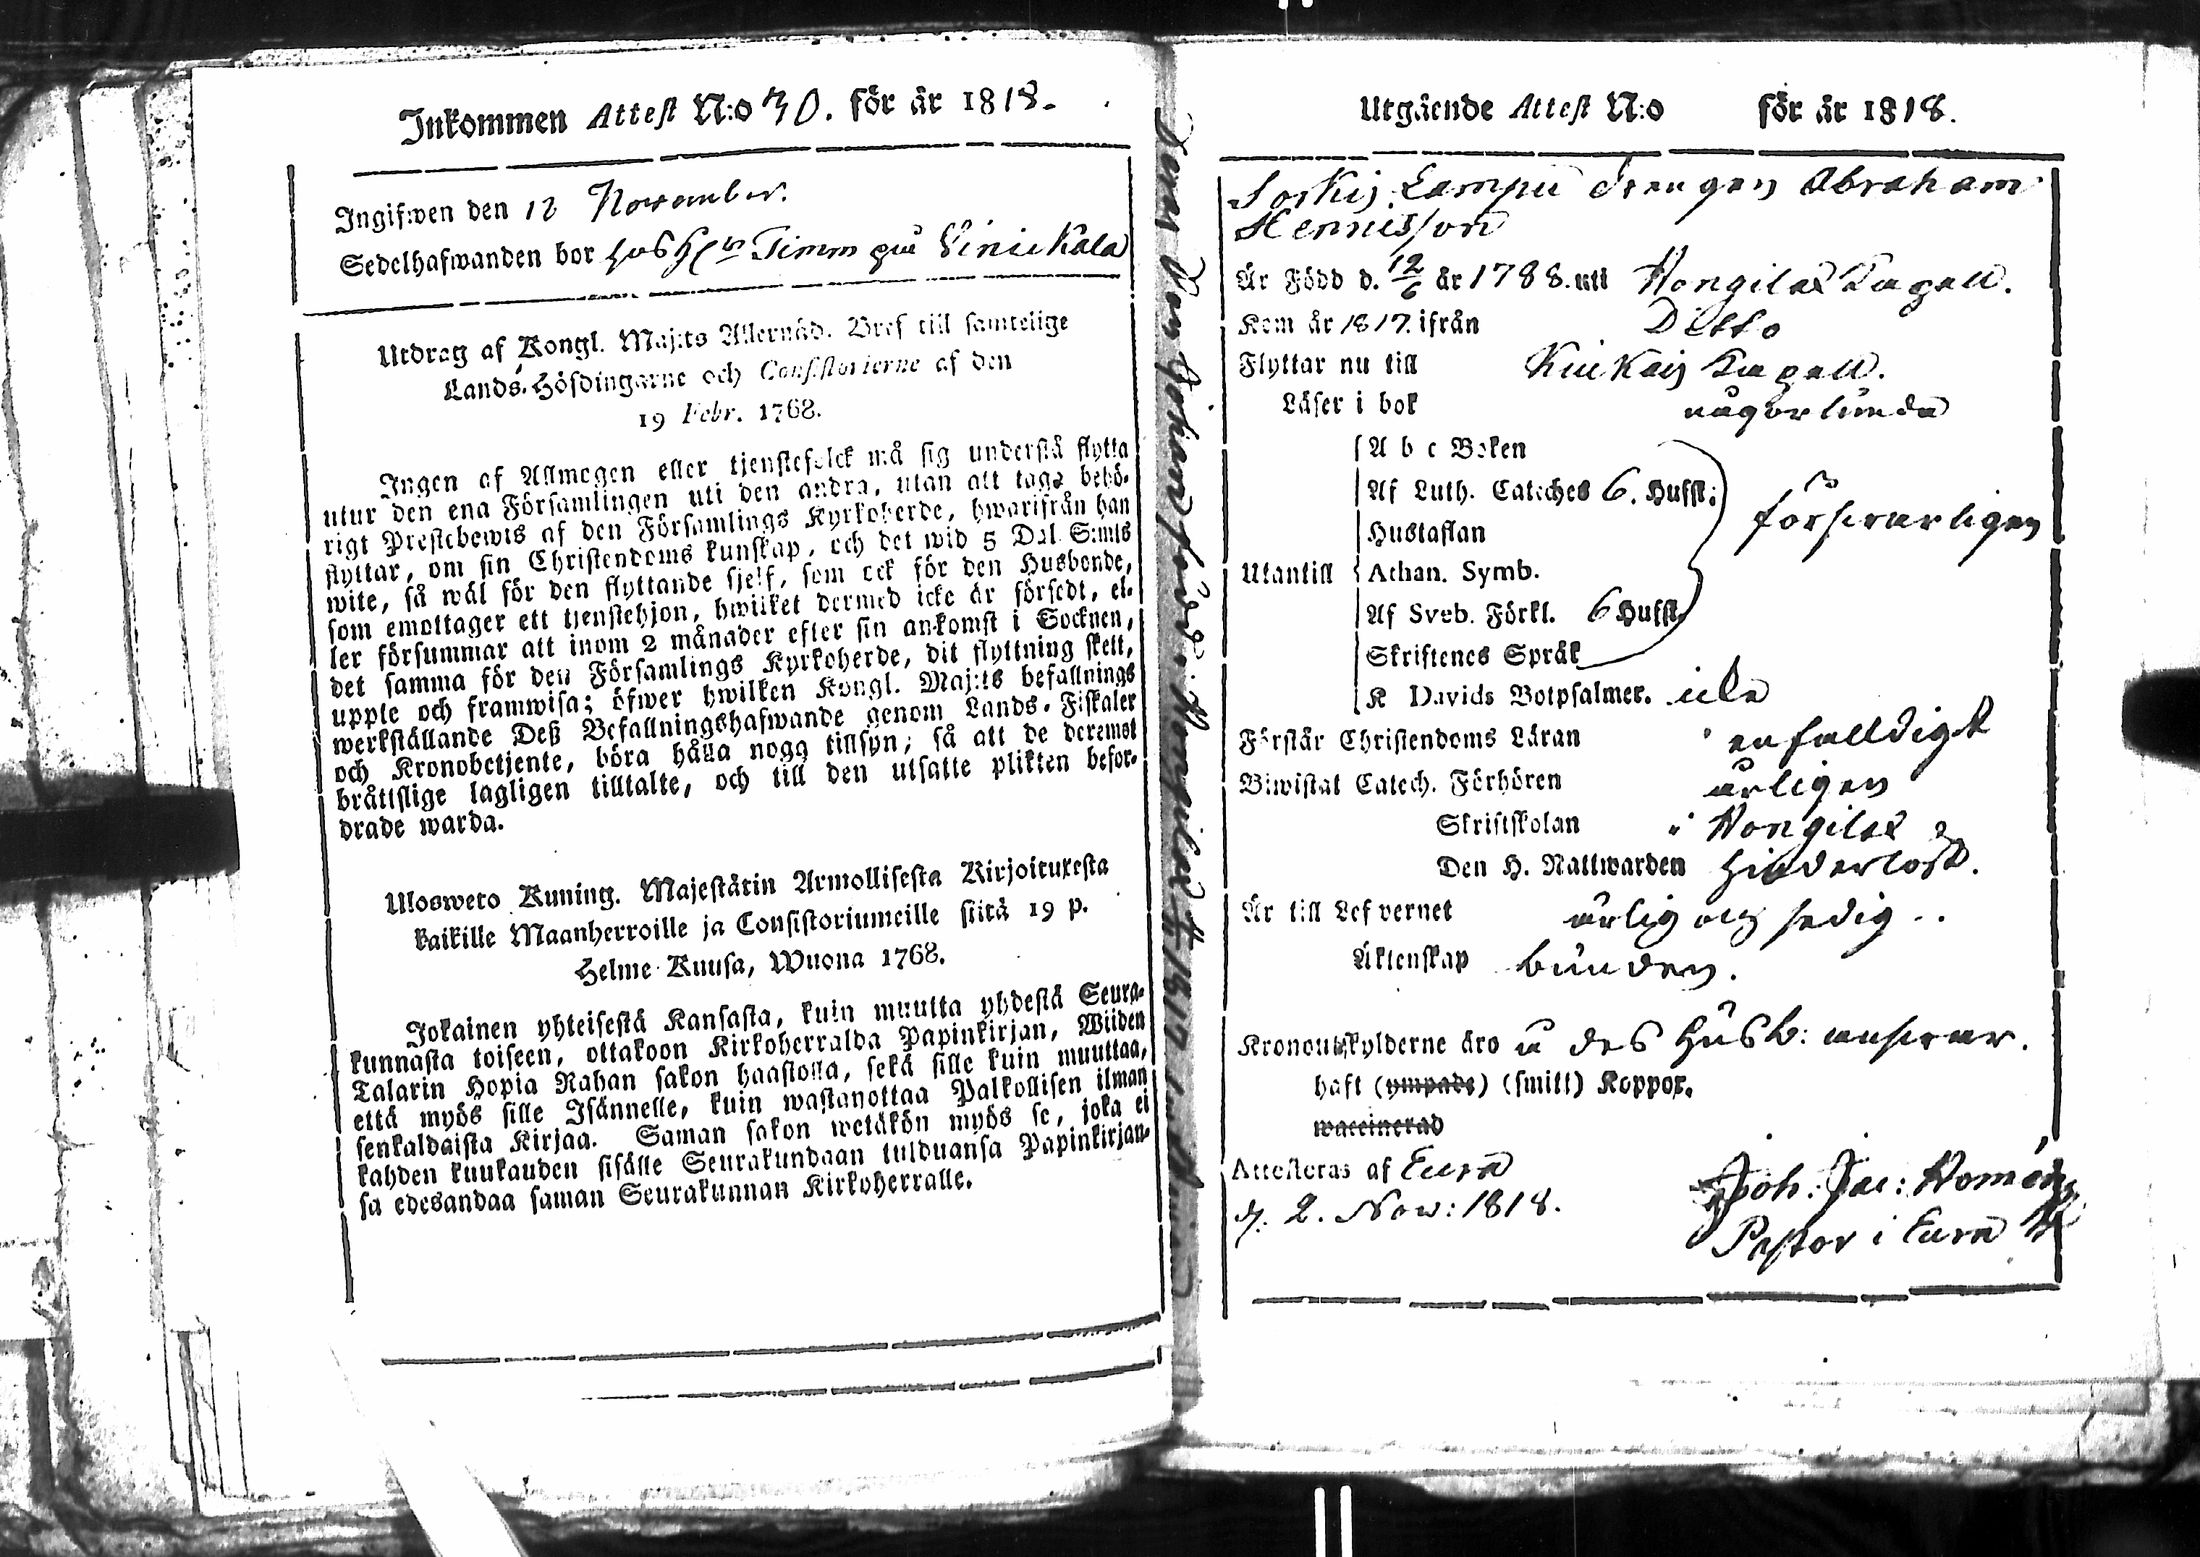 Inkommen Attest N:o 30. för år 1818.
Ingifwen den 12 November.
Sedelhafwanden bor hos H:r Timm på Viniekala
Utdrag af Kongl. Maj:ts Allernåd. Bref till samtelige
Lands-Höfdingarne och Consistorierne af den
19 Febr. 1768.
Ingen af Allmogen eller tjenstefolck må sig understå flytta
utur den ena Församlingen uti den andra, utan att taga behö-
rigt Prestebewis af den Församlings Kyrkoherde, hwarifrån han
flyttar, om sin Christendoms kunskap, och det wid 5 Dal. S:mts
wite, så wäl för den flyttande sjelf, som ock för den Husbonde,
som emottager ett tjenstehjon, hwilket dermed icke är försedt, el-
ler försummar att inom 2 månader efter sin ankomst i Socknen,
det samma för den Församlings Kyrkoherde, dit flyttning skett,
uppte och framwisa; öfwer hwilken Kongl. Maj:ts befallnings
werkställande Deß Befallningshafwande genom Lands-Fiskaler
och Kronobetjente, böra hålla noga tillsyn; så att de deremot
bråttslige lagligen tilltalte, och till den utsatte plikten befor-
drade warda.
Ulosweto Kuning. Majestätin Armollisesta Kirjoituxesta
kaikille Maanherroille ja Consistoriumeille siitä 19 p.
Helme-Kuusa, Wuona 1768.
Jokainen yhteisestä Kansasta, kuin muutta yhdestä Seura-
kunnasta toiseen, ottakoon Kirkoherralda Papinkirjan, Wiiden
Talarin Hopia Rahan sakon haastolla, sekä sille kuin muuttaa,
että myös sille Isännelle, kuin wastanottaa Palkollisen ilman
senkaldaista Kirjaa. Saman sakon wetäkön myös se, joka ei
kahden kuukauden sisälle Seurakundaan tulduansa Papinkirjan-
sa edesandaa saman Seurakunnan Kirkoherralle.
Utgående Attest N:o för år 1818.
Sorkis Lampu Drengen Abraham
Hennisson
Är Född d. 12/6 år 1788. uti Hongilax Capell.
Kom år 1817. ifrån Ditto
Flyttar nu till Kiukais Capell.
Läser i bok någorlunda
A b c Boken
Af Luth. Cateches 6. Hufst:
Hustaflan
försvarligen
Utantill Athan. Symb.
Af Sveb. Förkl. 6 Hufst.
Skriftenes Språk
K Davids Botpsalmer. icke
Förstår Christendoms Läran enfalldigt
Biwistat Catech. Förhören årligen
Skriftskolan i Hongilax
Den H. Nattwarden hinderlöst.
Är till Lefvernet ärlig och sedig..
Äktenskap bunden.
Kronoutskylderne äro å des Husb: ansvar.
haft (ympade) (smitt) Koppor.
waccinerad
Attesteras af Eura
d. 2. Nov: 1818.
Joh: Jac: Homén
Pastor i Eura